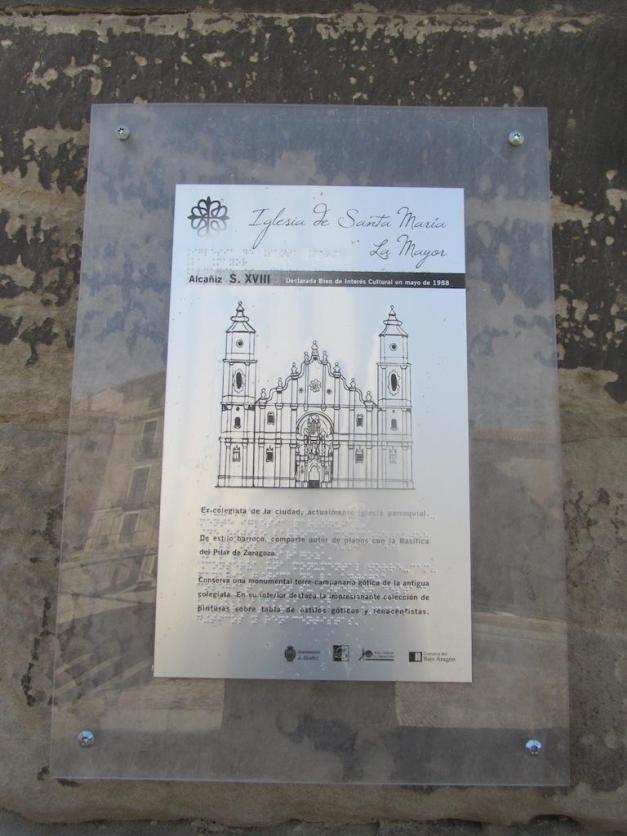 Iglesia de Santa María
La Mayor
Alcañiz S. XVIII Declarada Bien de Interés Cultural en mayo de 1988
Ex-colegiata de la ciudad, actualmente iglesia parroquial.
De estilo barroco, comparte autor de planos con la Basílica
del Pilar de Zaragoza.
Conserva una monumental torre-campanario gótica de la antigua
colegiata. En su interior destaca la impresionante colección de
pinturas sobre tabla de estilos góticos y renacentistas.
Ayuntamiento
de Alcañiz
Comarca del
Bajo Aragón